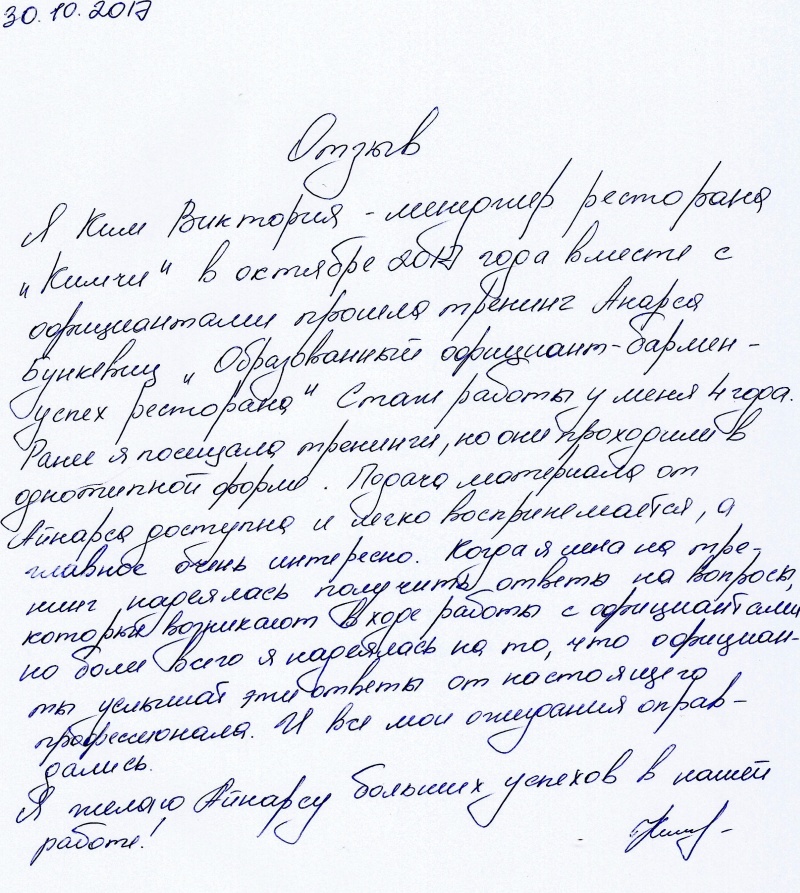 30.10.2017
Отзыв
Я Ким Виктория - менеджер ресторана
„Кимчи" в октябре 2017 года вместе с
официантами прошла тренинг Анарса
Бункевич „Образованный официант-бармен-
успех ресторана" Стаж работы у меня 4 года.
Ранее я посещала тренинги, но они проходили в
однотипной форме. Подача материала от
Айнарса доступна и легко воспринемается, а
главное очень интересно. Когда я шла на тре-
нинг надеялась получить ответы на вопросы,
которые возникают в ходе работы с официантами
но боле всего я надеялась на то, что официан-
ты услышат эти ответы от настоящего
профессионала. И все мои ожидания оправ-
дались.
Я желаю Айнарсу больших успехов в нашей
работе!